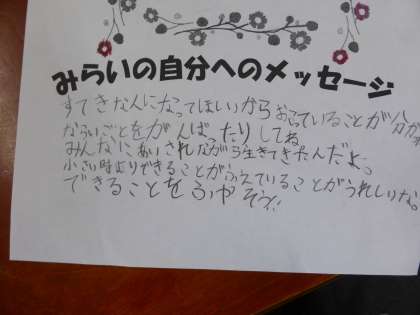 みらいの自分へのメッセージ
すてきな人になってほしいからおこっていることが分かっ
ならいごとをがんばったりしてね
みんなにあいされながら生きてきたんだよ。
小さい時よりできることがふえていることがうれしいな。
できることをふやそう!!